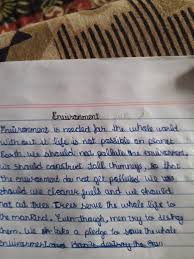 Environment
Environment is needed for the whole world
without it life is not possible on planet
Earth. We should not pollute the environment.
We should construct tall chimneys, so that
the environment do not get polluted. We
should use cleaner fuels and we should
not cut trees. Trees serve the whole life to
the mankind. Even though, men try to destroy
them. We take a pledge to save the whole
Environment destroy the